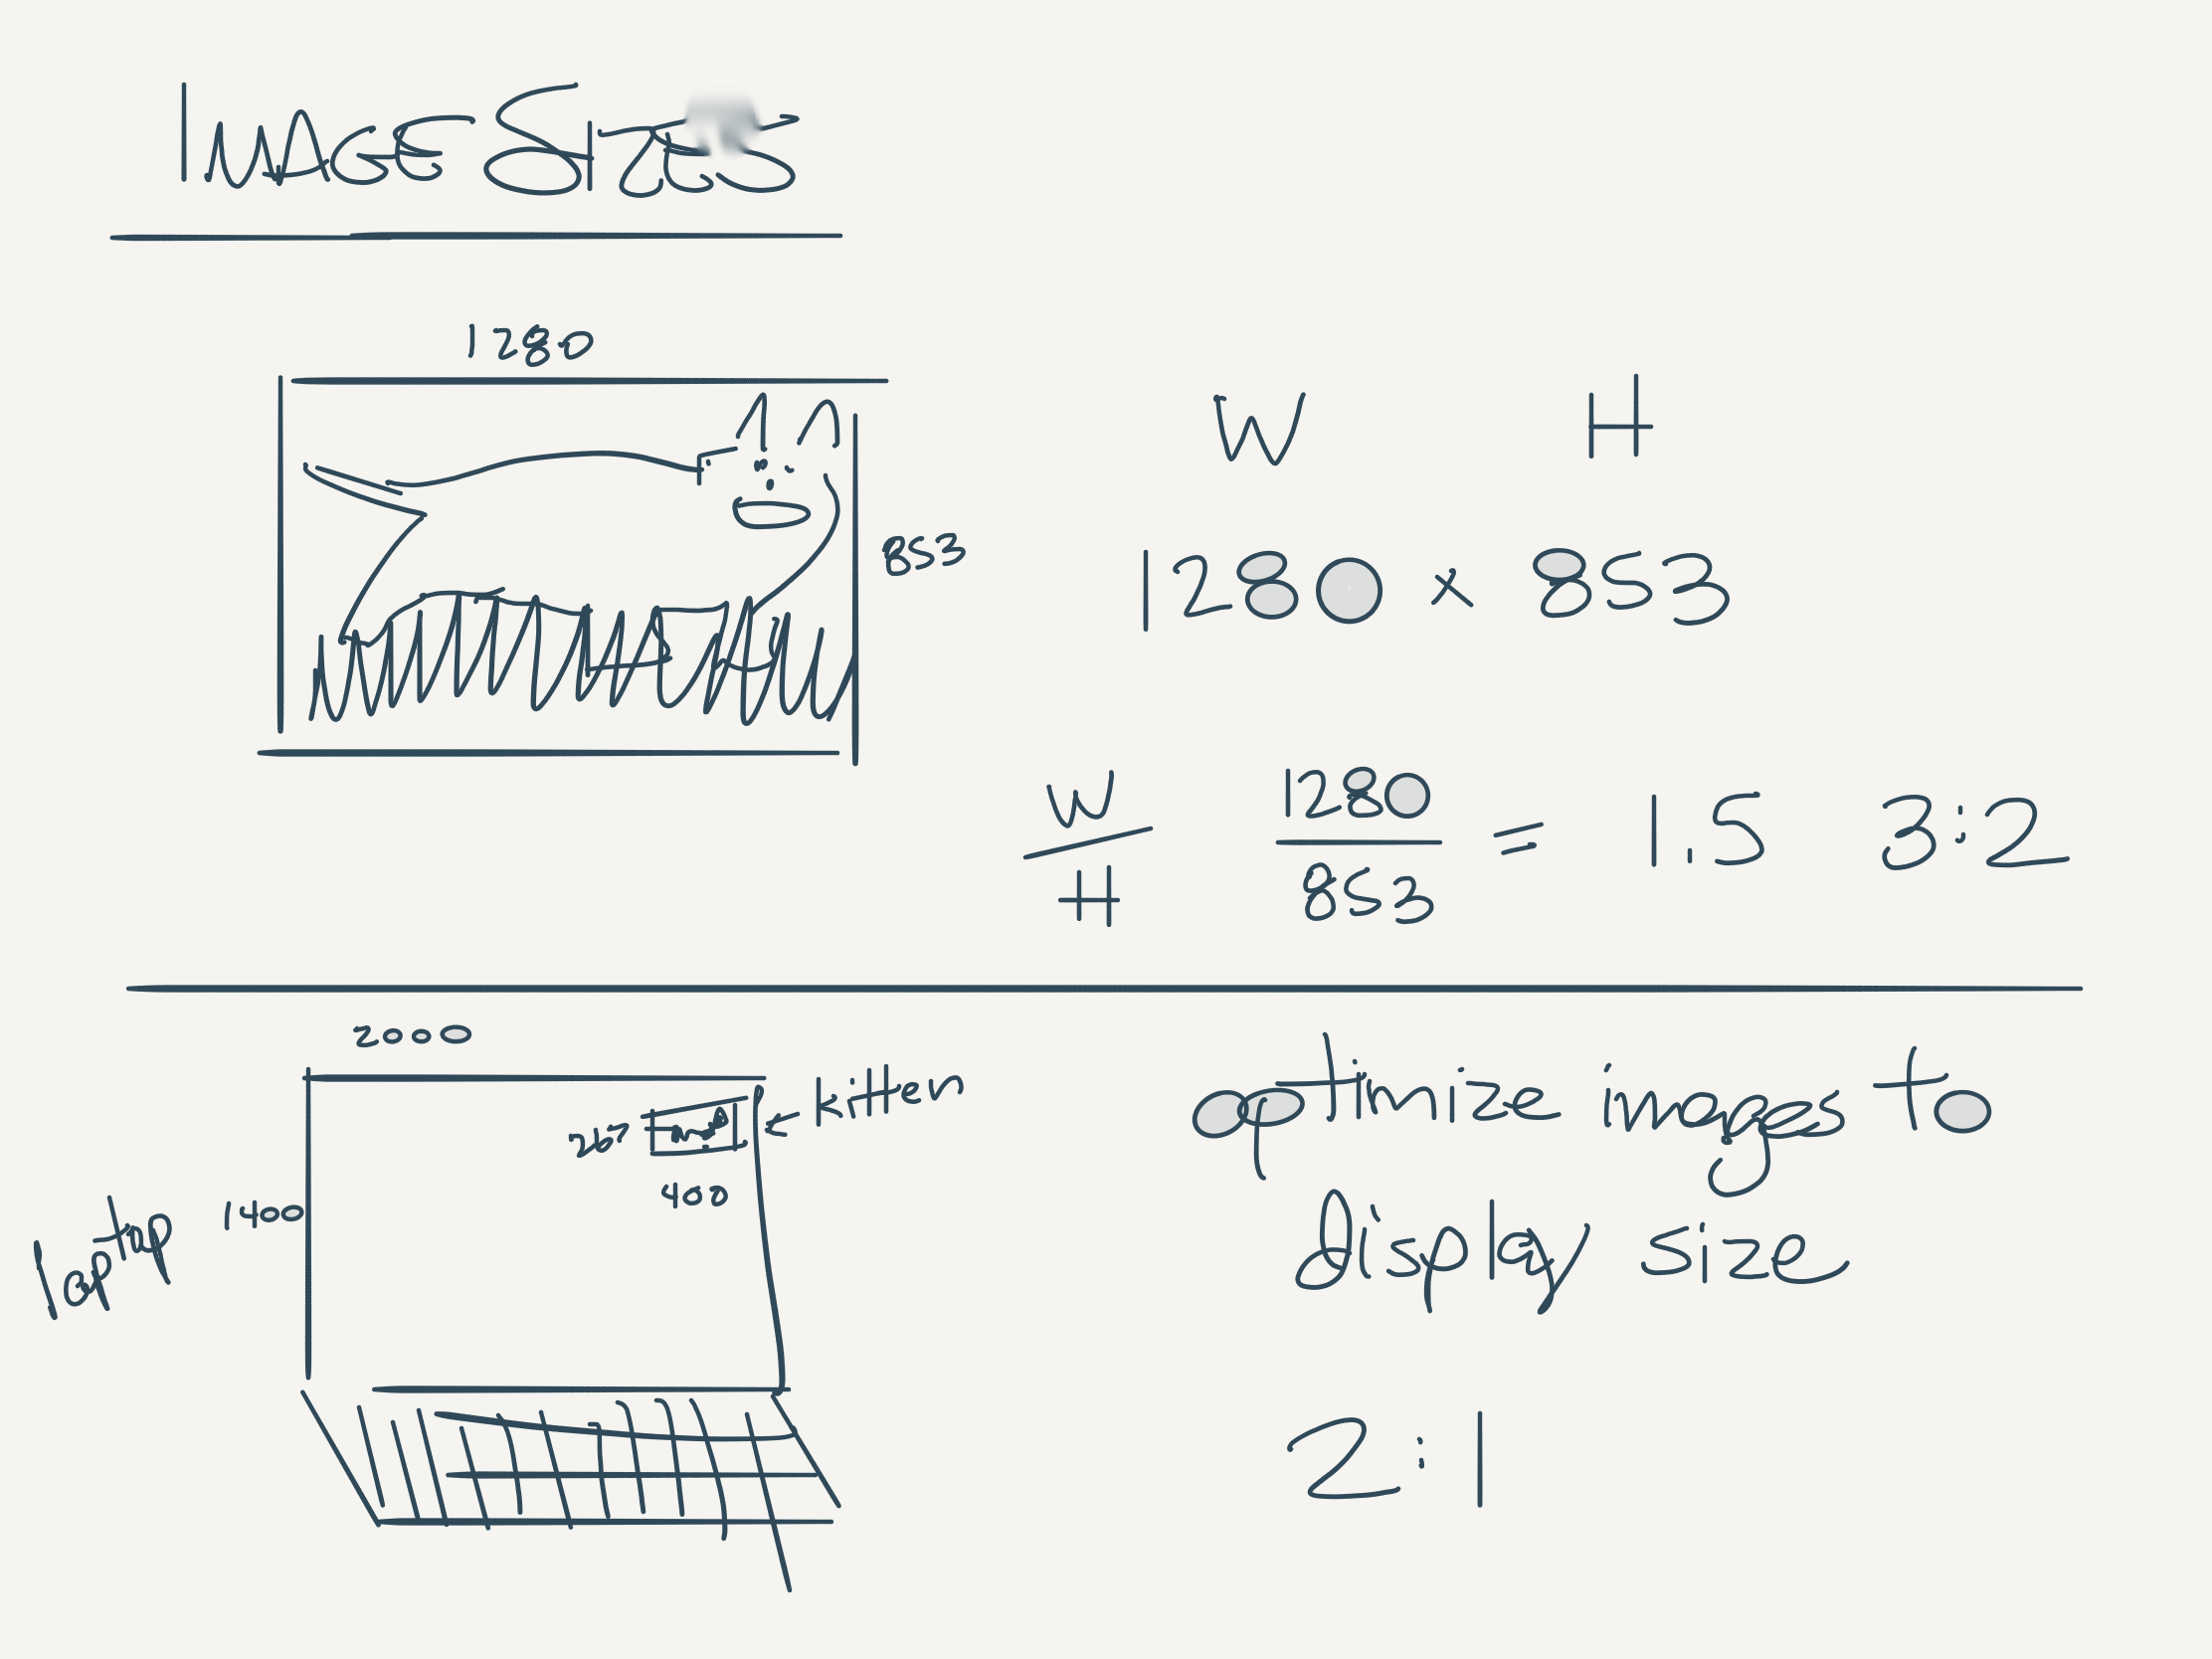 IMAGE SIZES
1280
853
W H
1280 x 853
W
H
1280
853
= 1.5 3:2
2000
kitten
267
400
1400
laptop
optimize images to
display size
2:1